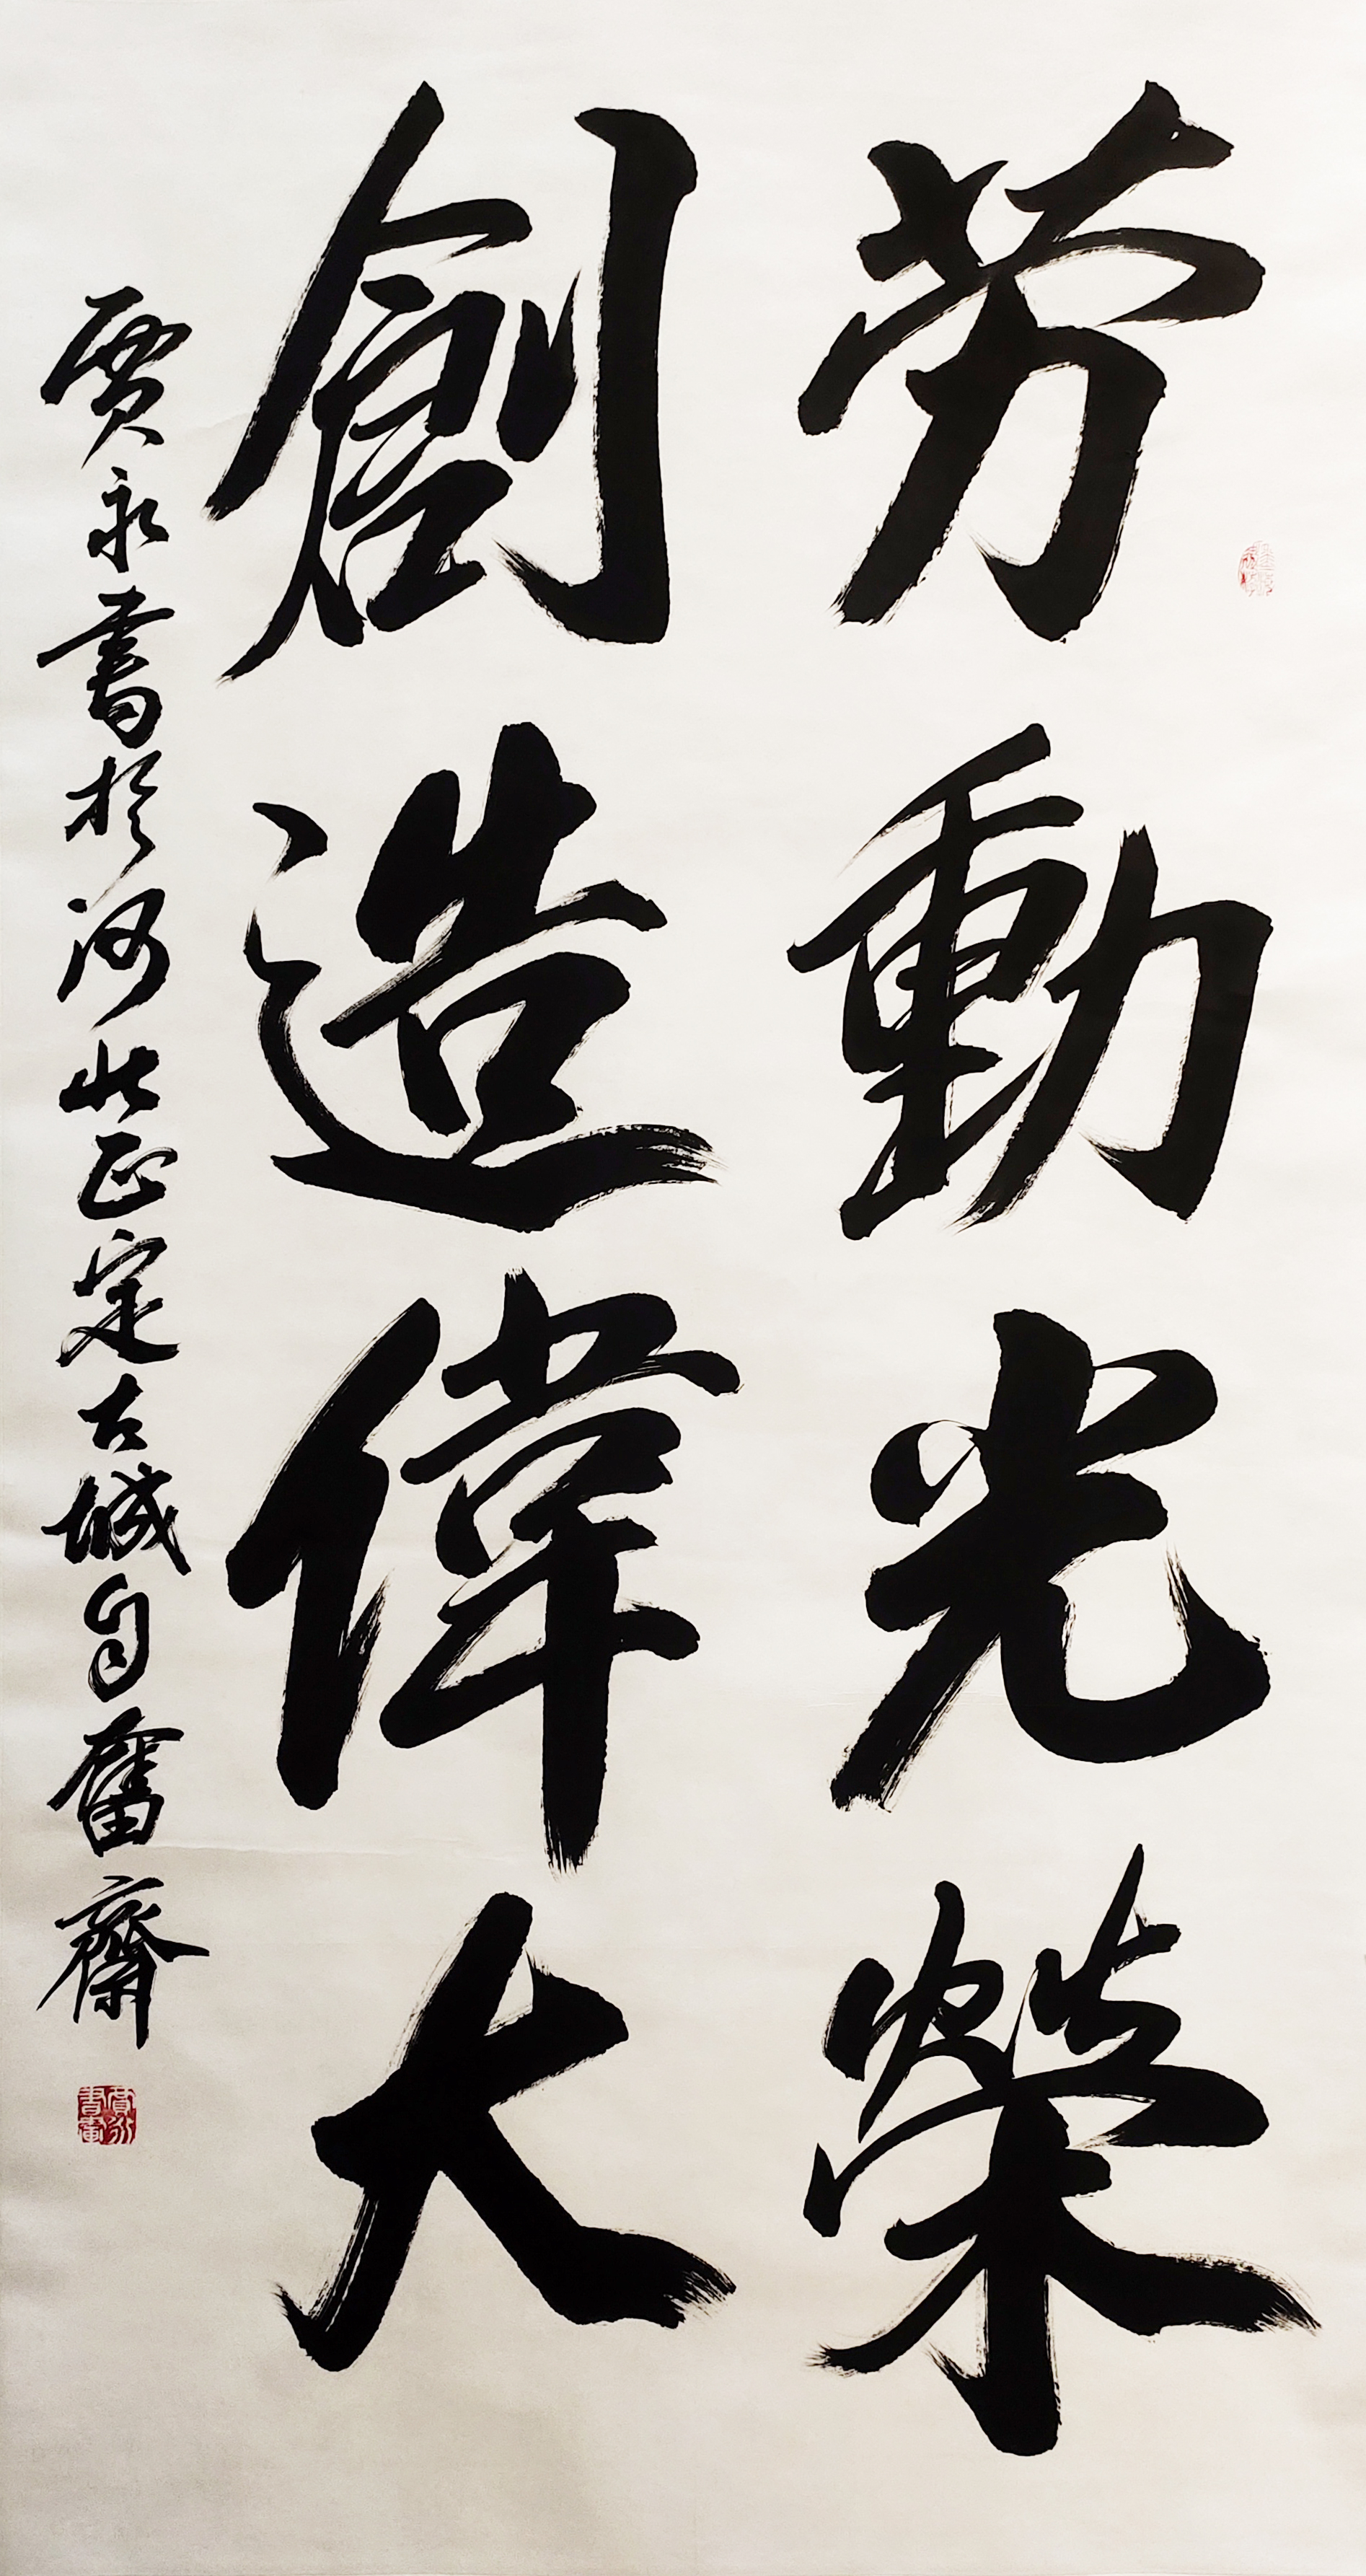 劳動光榮
創造偉大
賈永書於河北正定古城自奮齋